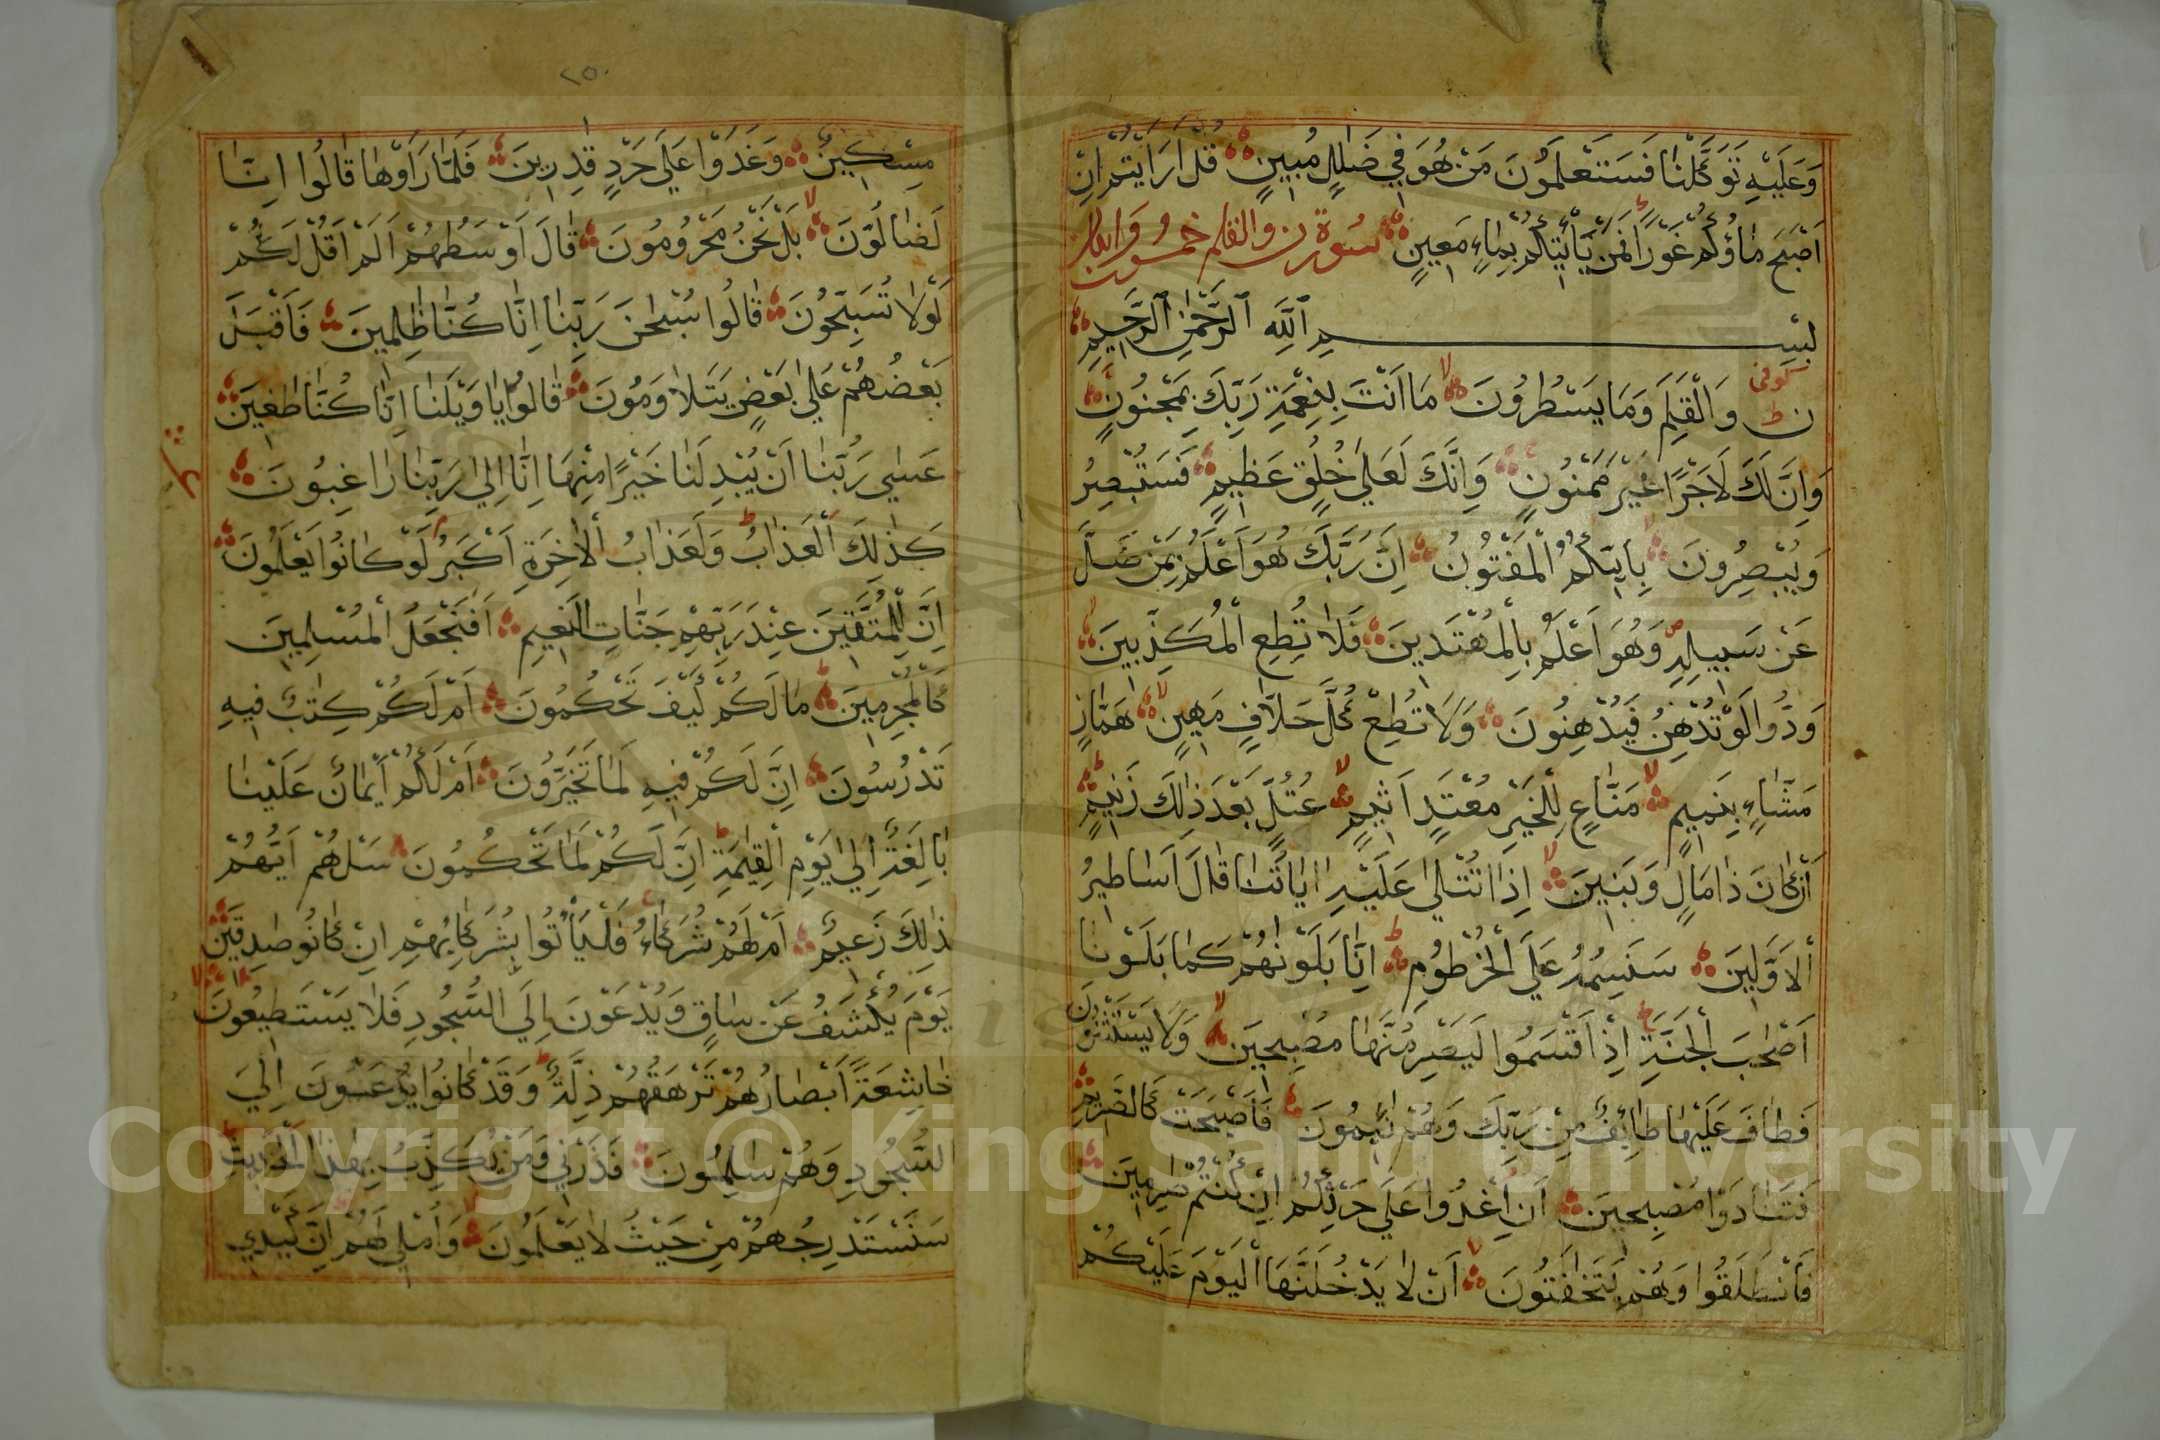 وَعَلَيْهِ تَوَكَّلْنَا فَسَتَعْلَمُونَ مَنْ هُوَ فِي ضَلٰلٍ مُبِينٍ قُلْ اَرَاَيْتُمْ اِنْ
اَصْبَحَ مَاؤُكُمْ غَوْرًا فَمَنْ يَأْتِيكُمْ بِمَاءٍ مَعِينٍ سورة ن والقلم خمسون وايتان
بِسْمِ اللّٰهِ الرَّحْمٰنِ الرَّحِيمِ
كوفى
ن وَالْقَلَمِ وَمَا يَسْطُرُونَ مَا اَنْتَ بِنِعْمَةِ رَبِّكَ بِمَجْنُونٍ
وَاِنَّ لَكَ لَاَجْرًا غَيْرَ مَمْنُونٍ وَاِنَّكَ لَعَلٰى خُلُقٍ عَظِيمٍ فَسَتُبْصِرُ
وَيُبْصِرُونَ بِاَيِّكُمُ الْمَفْتُونُ اِنَّ رَبَّكَ هُوَ اَعْلَمُ بِمَنْ ضَلَّ
عَنْ سَبِيلِهِ وَهُوَ اَعْلَمُ بِالْمُهْتَدِينَ فَلَا تُطِعِ الْمُكَذِّبِينَ
وَدُّوا لَوْ تُدْهِنُ فَيُدْهِنُونَ وَلَا تُطِعْ كُلَّ حَلَّافٍ مَهِينٍ هَمَّازٍ
مَشَّاءٍ بِنَمِيمٍ مَنَّاعٍ لِلْخَيْرِ مُعْتَدٍ اَثِيمٍ عُتُلٍّ بَعْدَ ذٰلِكَ زَنِيمٍ
اَنْ كَانَ ذَا مَالٍ وَبَنِينَ اِذَا تُتْلٰى عَلَيْهِ اٰيَاتُنَا قَالَ اَسَاطِيرُ
الْاَوَّلِينَ سَنَسِمُهُ عَلَى الْخُرْطُومِ اِنَّا بَلَوْنَاهُمْ كَمَا بَلَوْنَا
اَصْحٰبَ الْجَنَّةِ اِذْ اَقْسَمُوا لَيَصْرِمُنَّهَا مُصْبِحِينَ وَلَا يَسْتَثْنُونَ
فَطَافَ عَلَيْهَا طَائِفٌ مِنْ رَبِّكَ وَهُمْ نَائِمُونَ فَاَصْبَحَتْ كَالصَّرِيمِ
فَتَنَادَوْا مُصْبِحِينَ اَنِ اغْدُوا عَلٰى حَرْثِكُمْ اِنْ كُنْتُمْ صٰرِمِينَ
فَانْطَلَقُوا وَهُمْ يَتَخَافَتُونَ اَنْ لَا يَدْخُلَنَّهَا الْيَوْمَ عَلَيْكُمْ
٢٥٠
مِسْكِينٌ وَغَدَوْا عَلٰى حَرْدٍ قٰدِرِينَ فَلَمَّا رَاَوْهَا قَالُوا اِنَّا
لَضَالُّونَ بَلْ نَحْنُ مَحْرُومُونَ قَالَ اَوْسَطُهُمْ اَلَمْ اَقُلْ لَكُمْ
لَوْلَا تُسَبِّحُونَ قَالُوا سُبْحٰنَ رَبِّنَا اِنَّا كُنَّا ظٰلِمِينَ فَاَقْبَلَ
بَعْضُهُمْ عَلٰى بَعْضٍ يَتَلَاوَمُونَ قَالُوا يَا وَيْلَنَا اِنَّا كُنَّا طٰغِينَ
عَسٰى رَبُّنَا اَنْ يُبْدِلَنَا خَيْرًا مِنْهَا اِنَّا اِلٰى رَبِّنَا رَاغِبُونَ
كَذٰلِكَ الْعَذَابُ وَلَعَذَابُ الْاٰخِرَةِ اَكْبَرُ لَوْ كَانُوا يَعْلَمُونَ
اِنَّ لِلْمُتَّقِينَ عِنْدَ رَبِّهِمْ جَنَّاتِ النَّعِيمِ اَفَنَجْعَلُ الْمُسْلِمِينَ
كَالْمُجْرِمِينَ مَا لَكُمْ كَيْفَ تَحْكُمُونَ اَمْ لَكُمْ كِتٰبٌ فِيهِ
تَدْرُسُونَ اِنَّ لَكُمْ فِيهِ لَمَا تَخَيَّرُونَ اَمْ لَكُمْ اَيْمَانٌ عَلَيْنَا
بَالِغَةٌ اِلٰى يَوْمِ الْقِيٰمَةِ اِنَّ لَكُمْ لَمَا تَحْكُمُونَ سَلْهُمْ اَيُّهُمْ
بِذٰلِكَ زَعِيمٌ اَمْ لَهُمْ شُرَكَاءُ فَلْيَأْتُوا بِشُرَكَائِهِمْ اِنْ كَانُوا صٰدِقِينَ
يَوْمَ يُكْشَفُ عَنْ سَاقٍ وَيُدْعَوْنَ اِلَى السُّجُودِ فَلَا يَسْتَطِيعُونَ
خَاشِعَةً اَبْصَارُهُمْ تَرْهَقُهُمْ ذِلَّةٌ وَقَدْ كَانُوا يُدْعَوْنَ اِلَى
السُّجُودِ وَهُمْ سَالِمُونَ فَذَرْنِي وَمَنْ يُكَذِّبُ بِهٰذَا الْحَدِيثِ
سَنَسْتَدْرِجُهُمْ مِنْ حَيْثُ لَا يَعْلَمُونَ وَاُمْلِي لَهُمْ اِنَّ كَيْدِي
Copyright © King Saud University